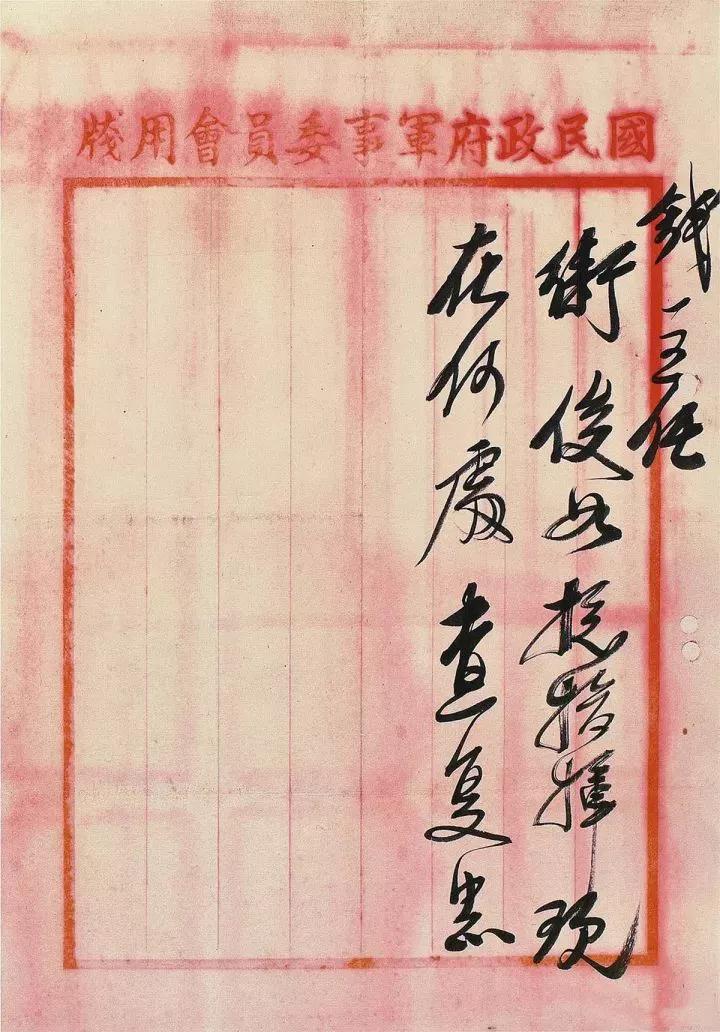 國民政府軍事委員會用牋
錢主任
衛俊如總指揮現
在何處查复